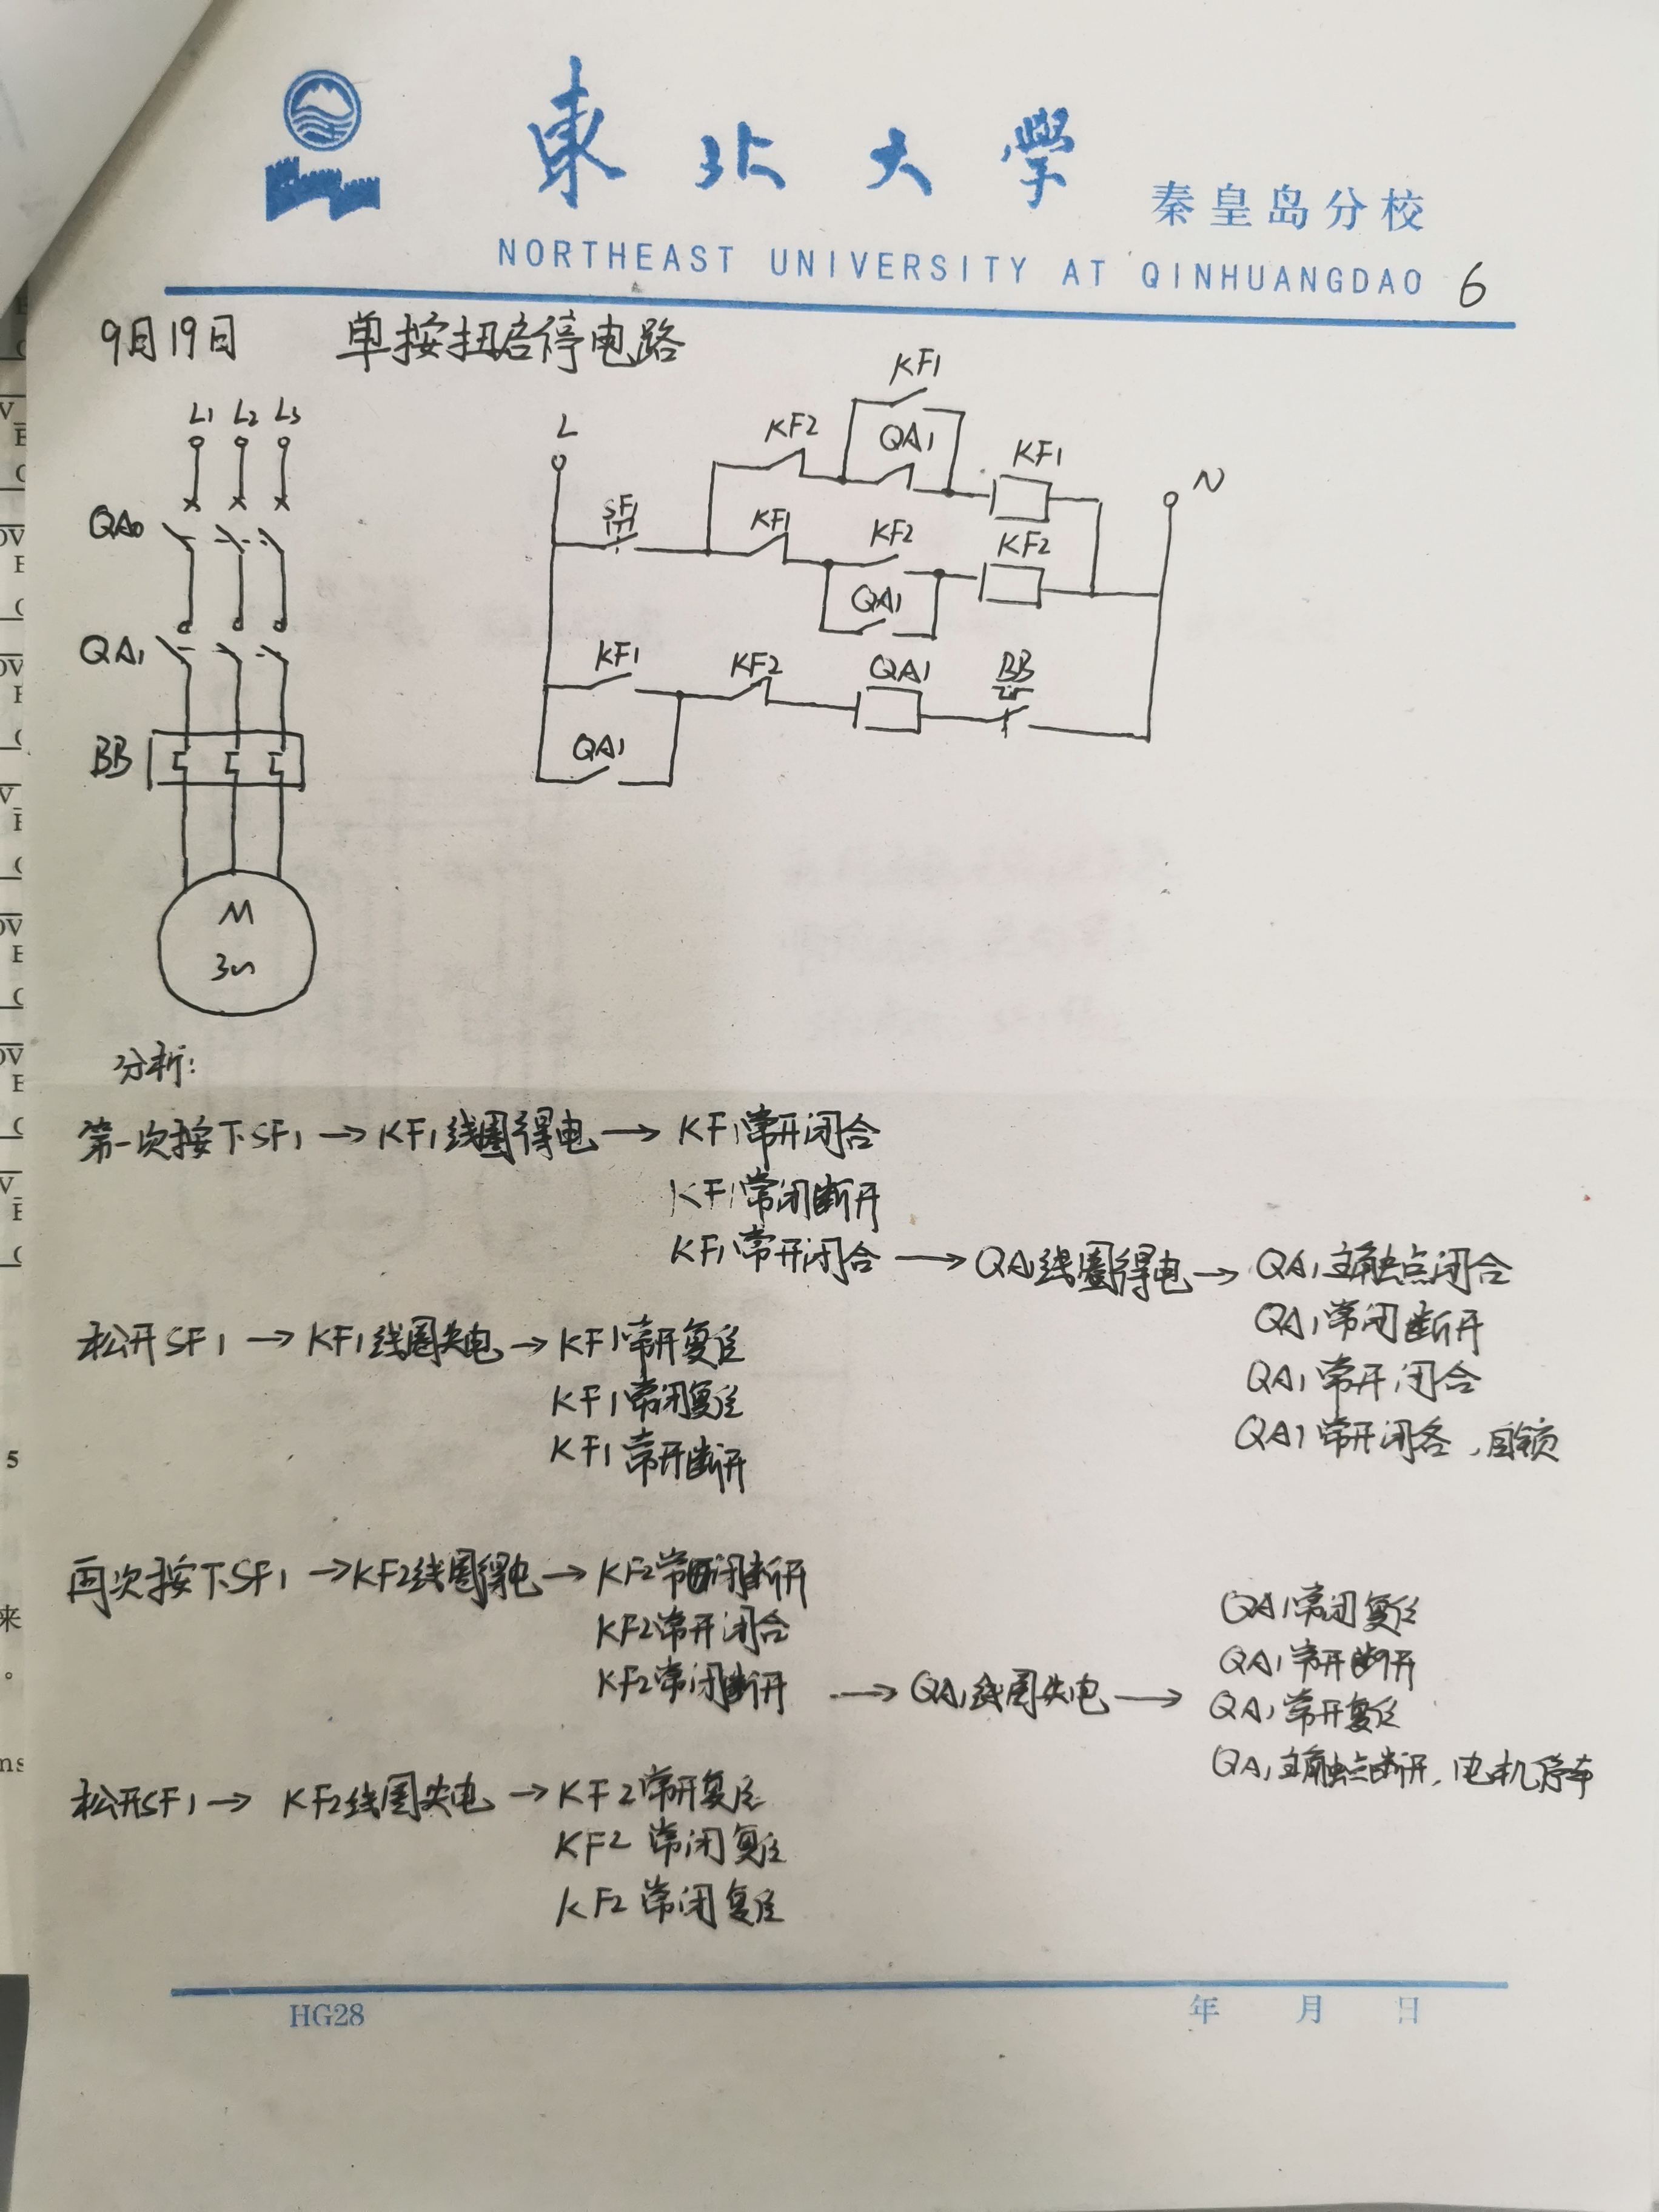 東北大學
秦皇岛分校
NORTHEAST UNIVERSITY AT QINHUANGDAO 6
9月19日 单按扭启停电路
L1 L2 L3
QA0
QA1
BB
M
3~
L
N
KF1
KF2 QA1 KF1
SF1 KF1 KF2 KF2
QA1
KF1 KF2 QA1 BB
QA1
分析:
第一次按下SF1 → KF1线圈得电 → KF1常开闭合
KF1常闭断开
KF1常开闭合 → QA1线圈得电 → QA1主触点闭合
QA1常闭断开
QA1常开闭合
QA1常开闭各,自锁
松开SF1 → KF1线圈失电 → KF1常开复位
KF1常闭复位
KF1常开断开
再次按下SF1 → KF2线圈得电 → KF2常闭断开
KF2常开闭合
KF2常闭断开 → QA1线圈失电 → QA1常闭复位
QA1常开断开
QA1常开复位
QA1主触点断开,电机停车
松开SF1 → KF2线圈失电 → KF2常开复位
KF2常闭复位
KF2常闭复位
HG28
年 月 日